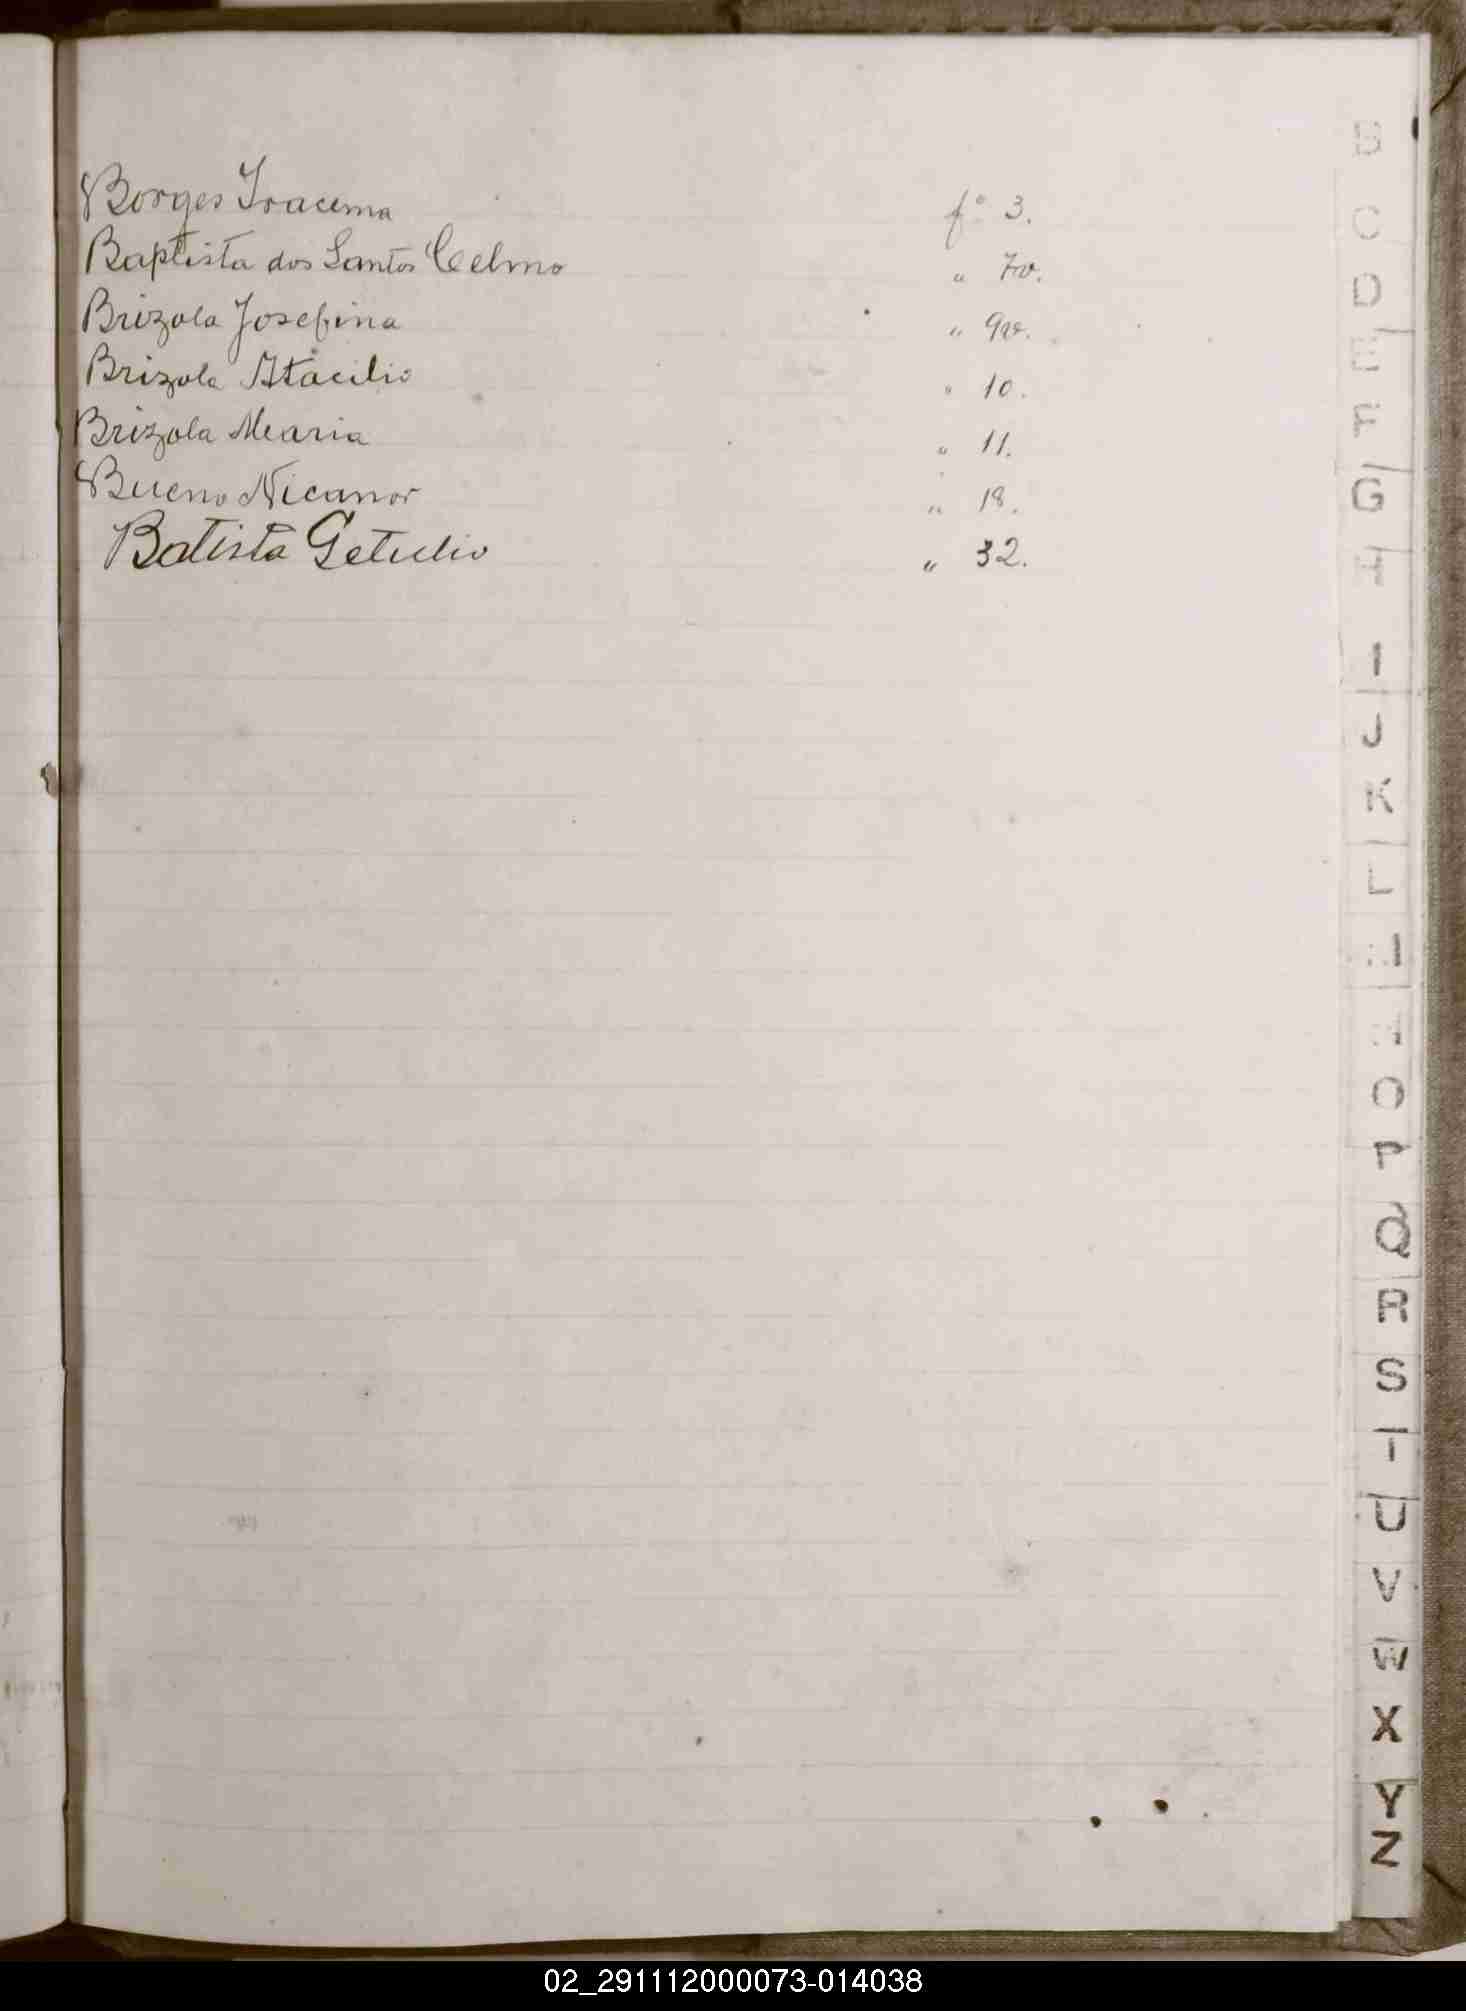 Borges Iracema fº 3.
Baptista dos Santos Celmo " 7v.
Brizola Josefina " 9v.
Brizola Atacilio " 10.
Brizola Maria " 11.
Bueno Nicanor " 18.
Batista Getulio " 32.
B
C
D
E
F
G
H
I
J
K
L
O
P
Q
R
S
T
U
V
W
X
Y
Z
02_291112000073-014038